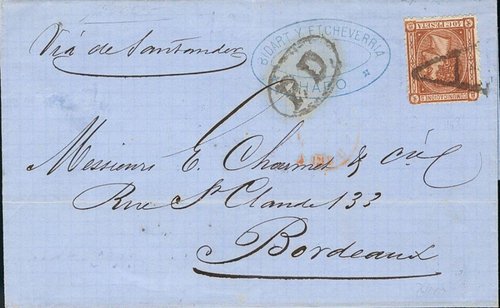 Via de Santander
BIDART Y ETCHEVERRIA
P.D.
Messieurs E. Charmet & cie
Rue St Claude 133
Bordeaux